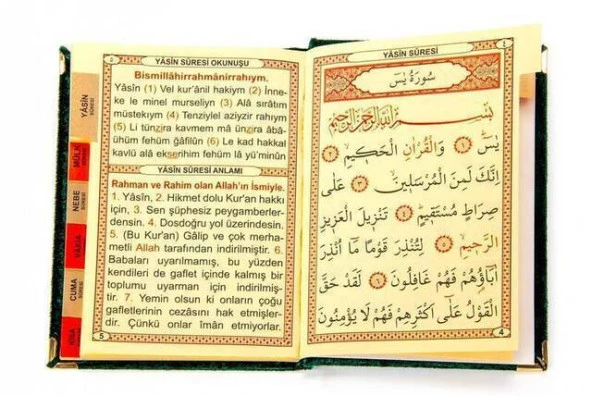 YÂSÎN SÛRESİ OKUNUŞU
Bismillâhirrahmânirrahıym.
Yâsîn (1) Vel kur'ânil hakiym (2) İnne-
ke le minel murseliyn (3) Alâ sırâtım
müstekıym (4) Tenziylel aziyzir rahıym
(5) Li tünzira kavmem mâ ünzira âbâ-
ühüm fehüm gâfilûn (6) Le kad hakkal
kavlü alâ ekserihim fehüm lâ yü'minûn
YÂSÎN SÛRESİ ANLAMI
Rahman ve Rahim olan Allah'ın İsmiyle.
1. Yâsîn, 2. Hikmet dolu Kur'an hakkı
için, 3. Sen şüphesiz peygamberler-
densin. 4. Dosdoğru yol üzerindesin.
5. (Bu Kur'an) Gâlip ve çok merha-
metli Allah tarafından indirilmiştir. 6.
Babaları uyarılmamış, bu yüzden
kendileri de gaflet içinde kalmış bir
toplumu uyarman için indirilmiş-
tir. 7. Yemin olsun ki onların çoğu
gafletlerinin cezasını hak etmişler-
dir. Çünkü onlar îmân etmiyorlar.
5
YÂSÎN
SÛRESİ
MÜLK
NEBE
SÛRESİ
VAKIA
CUMA
SÛRESİ
YÂSÎN SÛRESİ
سُورَةُ يٰسٓ
بِسْمِ اللّٰهِ الرَّحْمٰنِ الرَّحِيمِ
يٰسٓ ﴿١﴾ وَالْقُرْاٰنِ الْحَكِيمِ ﴿٢﴾
اِنَّكَ لَمِنَ الْمُرْسَلِينَ ﴿٣﴾ عَلٰى
صِرَاطٍ مُسْتَقِيمٍ ﴿٤﴾ تَنْزِيلَ الْعَزِيزِ
الرَّحِيمِ ﴿٥﴾ لِتُنْذِرَ قَوْمًا مَٓا اُنْذِرَ
اٰبَٓاؤُ۬هُمْ فَهُمْ غَافِلُونَ ﴿٦﴾ لَقَدْ حَقَّ
الْقَوْلُ عَلٰٓى اَكْثَرِهِمْ فَهُمْ لَا يُؤْمِنُونَ
4